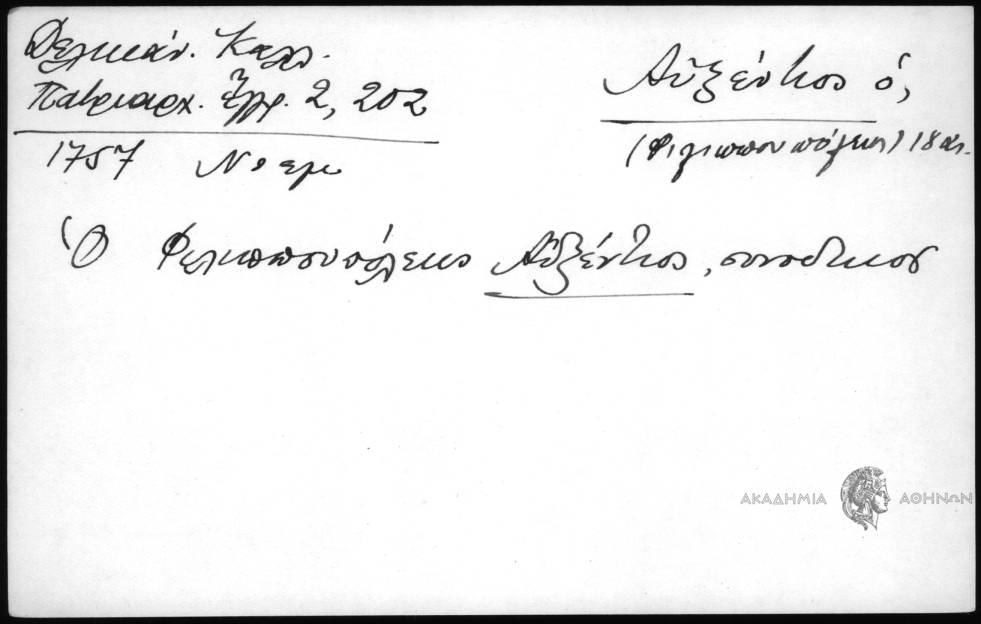 Δελικάν. Καλλ.
Πατριαρχ. Ἔγγρ. 2, 202
Αὐξέντιος ὁ,
(Φιλιππουπόλεως) 18 αι.
1757 Νοεμ
Ὁ Φιλιππουπόλεως Αὐξέντιος, συνοδικός
ΑΚΑΔΗΜΙΑ ΑΘΗΝΩΝ